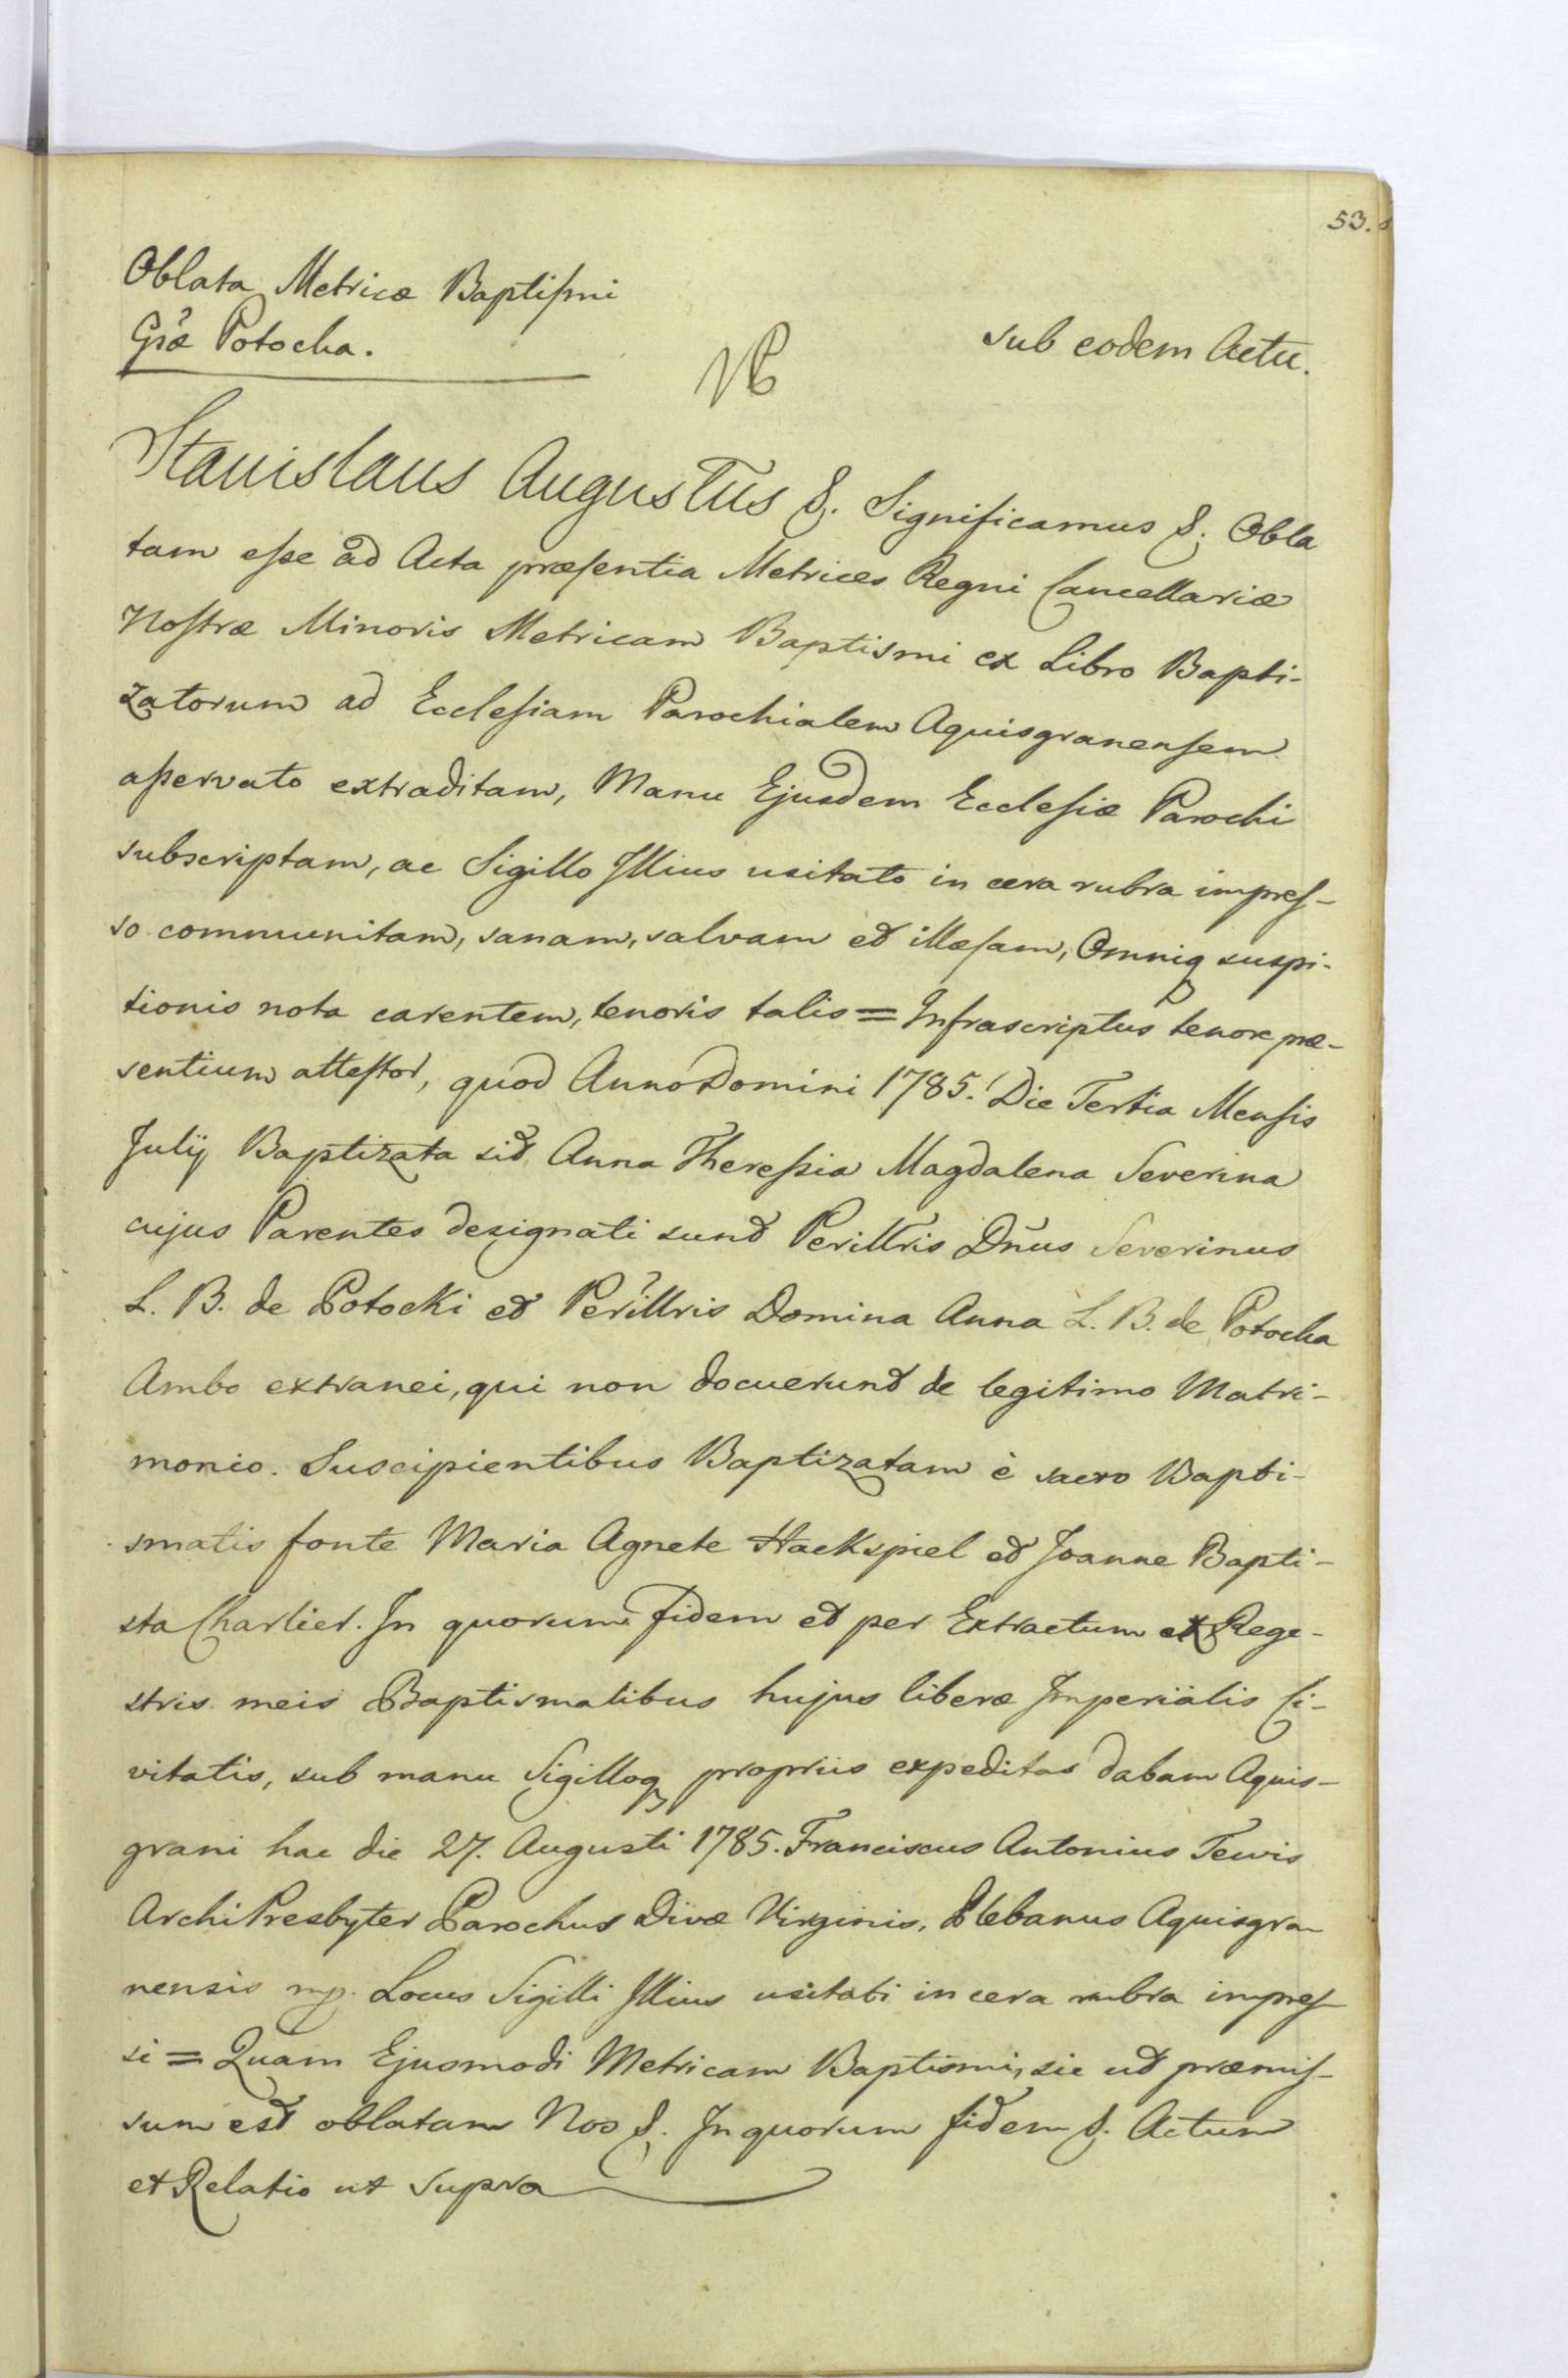 53.
Oblata Metricæ Baptismi
Gsæ Potocka.
sub eodem Actu.
NB
Stanislaus Augustus &. Significamus &. Obla
tam esse ad Acta præsentia Metrices Regni Cancellariæ
Nostræ Minoris Metricam Baptismi ex Libro Bapti-
zatorum ad Ecclesiam Parochialem Aquisgranensem
asservato extraditam, Manu Ejusdem Ecclesiæ Parochi
subscriptam, ac Sigillo Illius usitato in cera rubra impres-
so communitam, sanam, salvam et illæsam, Omniq suspi-
tionis nota carentem, tenoris talis = Infrascriptus tenore præ-
sentium attestor, quod Anno Domini 1785. Die Tertia Mensis
Julij Baptizata sit Anna Theressia Magdalena Severina
cujus Parentes designati sunt Perillris Dnus Severinus
L. B. de Potocki et Perillris Domina Anna L. B. de Potocka
Ambo extranei, qui non docuerunt de legitimo Matri-
monio. Suscipientibus Baptizatam è sacro Bapti-
smatis fonte Maria Agnete Hackspiel et Joanne Bapti-
sta Charlier. In quorum fidem et per Extractum ex Rege-
stris meis Baptismalibus hujus liberæ Imperialis Ci-
vitatis, sub manu Sigilloq propriis expeditas dabam Aquis-
grani hac die 27. Augusti 1785. Franciscus Antonius Tewis
ArchiPresbyter Parochus Divæ Virginis, Plebanus Aquisgra
nensis mp. Locus Sigilli Illius usitati in cera rubra impres-
si = Quam Ejusmodi Metricam Baptismi, sic ut præmis-
sum est oblatam Nos &. In quorum fidem &. Actum
et Relatio ut supra